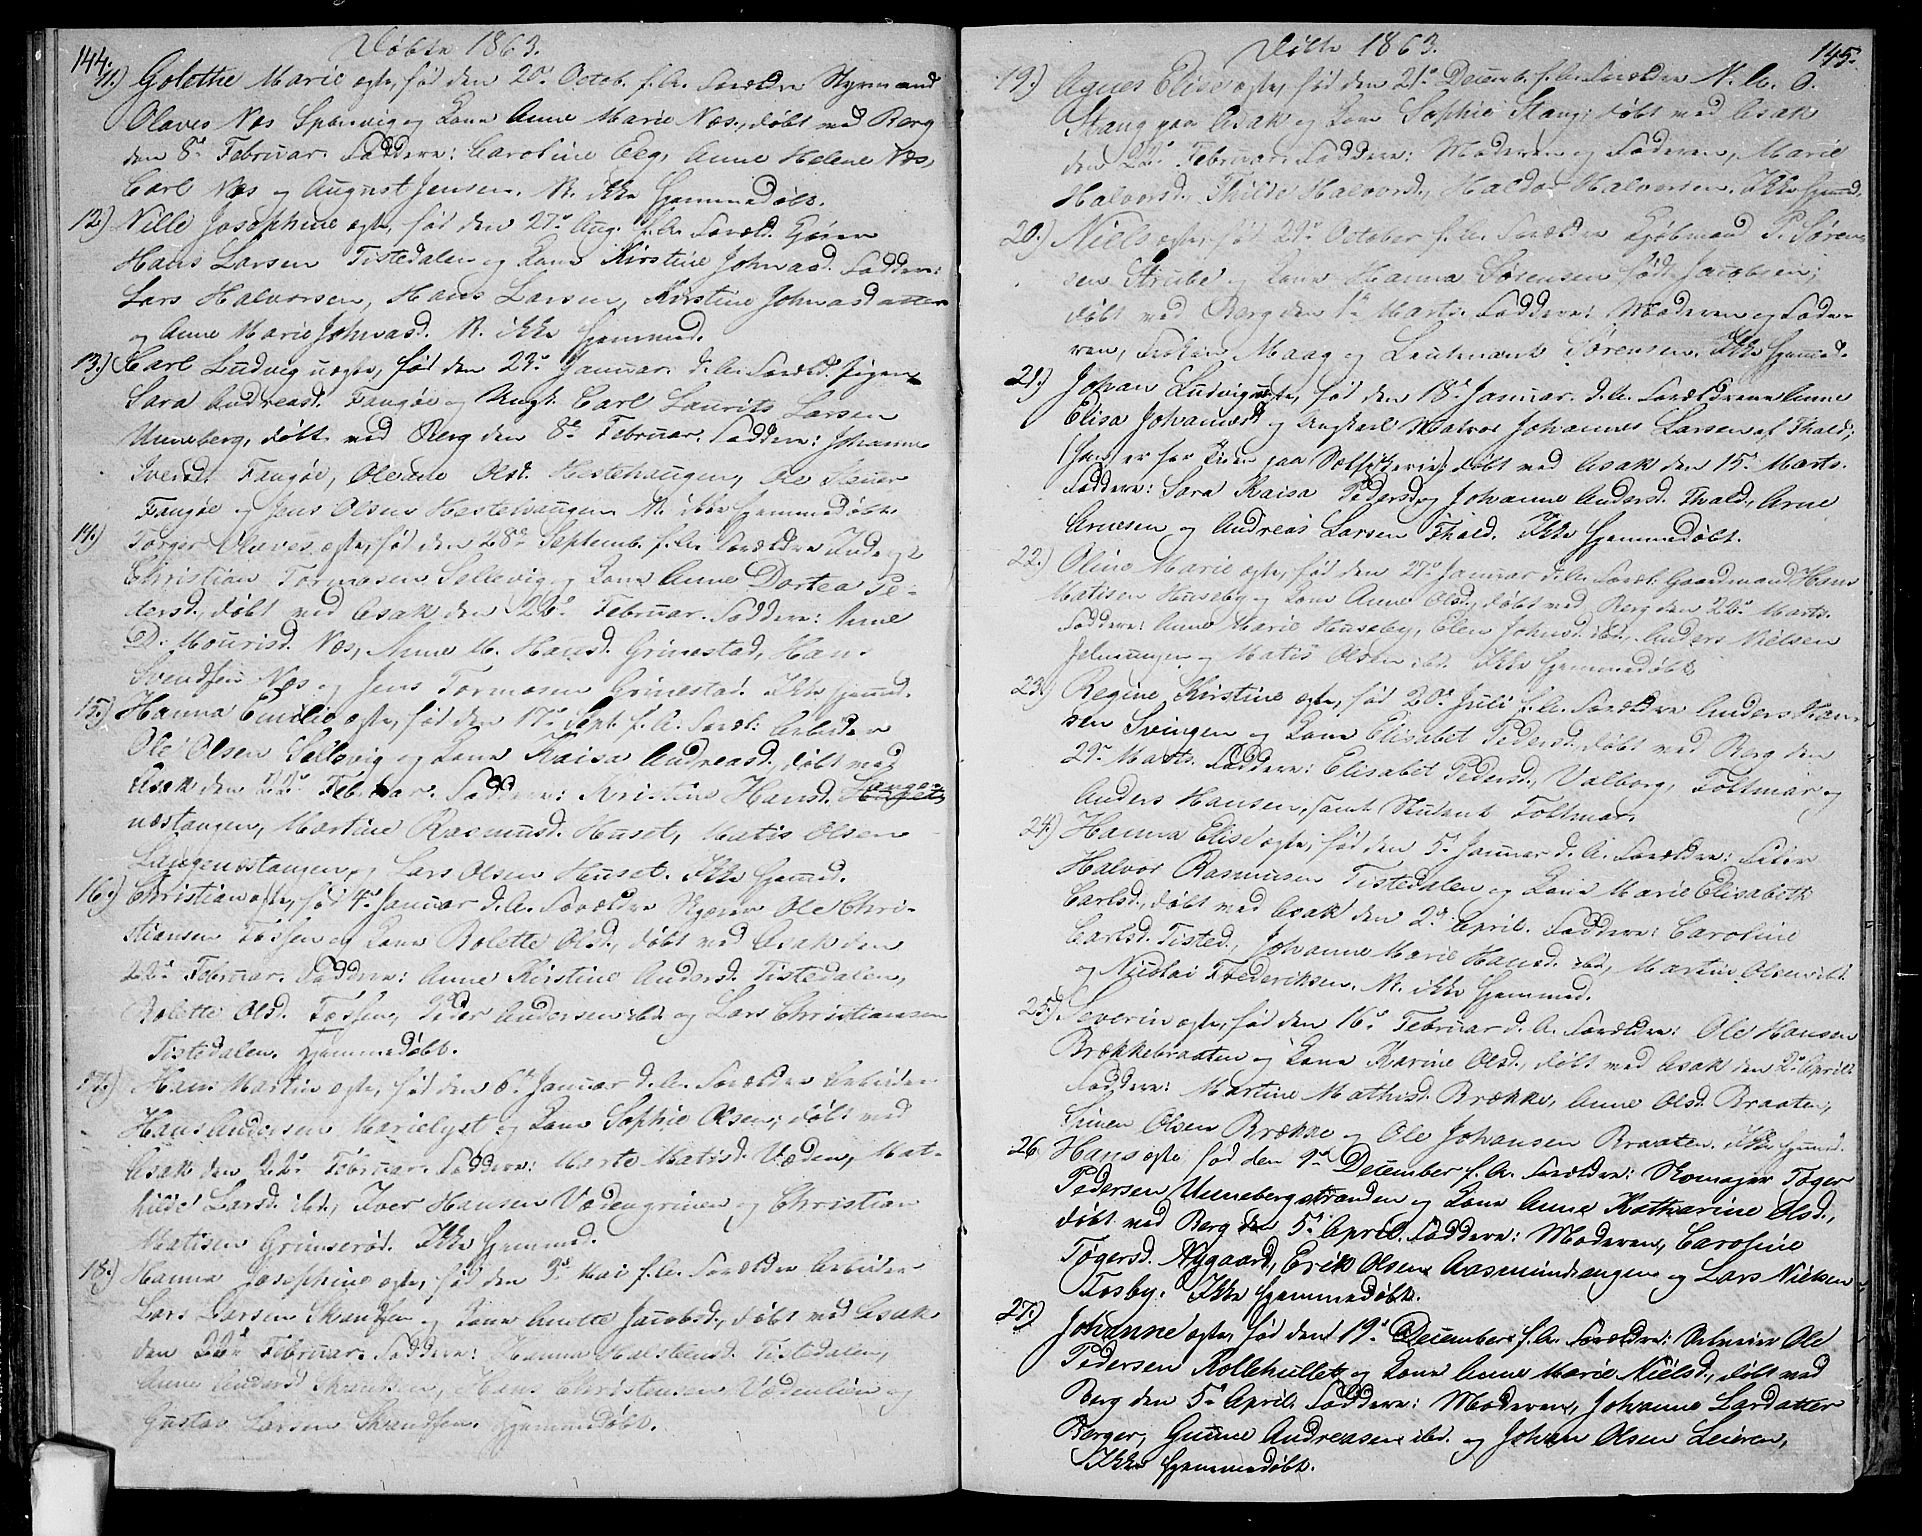 144.
Døbte 1863.
11.) Golothe Marie ægte, fød den 20de Octob. f. A. Forældre Styrmand
Olaves Næs Sponvig og Kone Anne Marie Næs, døbt ved Berg
den 8de Februar. Faddere: Caroline Elg, Anne Helene Næs,
Carl Næs og August Jensen. N. ikke hjemmedøbt.
12.) Nille Josephine ægte, fød den 27de Aug. f. A. Foræld.
Hans Larsen Tistedalen og Kone Kirstine Johnasd. Faddere:
Lars Halvorsen, Hans Larsen, Kirstine Johnasdatter
og Anne Marie Johnasd. N. ikke hjemmed.
13.) Carl Ludvig uægte, fød den 29de Januar d. A. Foræld. Pigen
Sara Andreasd. Fangøe og Ungk. Carl Laurits Larsen
Unneberg, døbt ved Berg den 8de Februar. Faddere: Johanne
Iversd. Fangøe, Oleane Olsd. Hestehaugen, Ole Iversen
Fangøe og Jens Olsen Hestehaugen N. ikke hjemmedøbt
14.) Torger Olaves ægte, fød den 28de Septemb. f. A. Forældre Inderst
Christian Tormosen Sellevig og Kone Anne Dortea Pe-
dersd., døbt ved Asak den 22de Februar. Faddere: Anne
D. Mourisd. Næs, Anne M. Hansd. Grimestad, Hans
Svendsen Næs og Jens Tormosen Grimestad. Ikke hjemmd.
15.) Hanna Emilie ægte, fød den 17de Sept. f. A. Foræld: Arbeider
Ole Olsen Sellevig og Kone Kaisa Andreasd., døbt ved
Asak den 22de Februar. Faddere: Kristine Hansd. Langen-
næstangen, Martine Rasmusd. Huset, Matis Olsen
Langenæstangen, Lars Olsen Huset. Ikke hjemmd.
16.) Christian ægte, fød 4de Januar d. A. Forældre Ole Chri-
stiansen Fossen og Kone Bolette Olsd., døbt ved Asak den
22de Februar. Faddere: Anne Kirstine Andersd. Tistedalen,
Bolette Olsd. Fossen, Peder Andersen ibd. og Lars Christiansen
Tistedalen. Hjemmedøbt.
17.) Hans Martin ægte, fød den 6te Januar d. A. Forældre Arbeider
Hans Andersen Marielyst og Kone Sophie Olsen, døbt ved
Asak den 22de Februar. Faddere: Marte Matisd. Væden, Mat-
hilde Larsd. ibd., Iver Hansen Vædengrinen og Christian
Matisen Grimserød. Ikke hjemmed.
18.) Hanna Josephine ægte, fød den 3de Mai f. A. Forældre Arbeider
Lars Larsen Skandsen og Kone Anette Jacobsd., døbt ved Asak
den 22de Februar. Faddere: Hanna Halstensd. Tistedalen,
Anne Andersd. Skandsen, Hans Christensen Vædenlien og
Gustav Larsen Skandsen. Hjemmedøbt.
Døbte 1863.
145.
19.) Agnes Elise ægte, fød den 21de Decemb. f. A. Forældre N. A. O.
Stang paa Asak og Kone Sophie Stang; døbt ved Asak
den 22de Februar. Faddere: Moderen og Faderen, Marie
Halvorsd. Thilde Halvorsd., Haldor Halvorsen. Ikke hjemmd.
20.) Niels ægte, fød 29de October f. A. Forældre Kjøbmand P. Søren-
sen Strube og Kone Hanna Sørensen født Jacobsen;
døbt ved Berg den 1ste Marts. Faddere: Moderen og Fade-
ren, Frøken Maag og Leutnant Sørensen. Ikke hjemmd.
21.) Johan Ludvig uægte, fød den 18de Januar d. A. Forældrene Anne
Elisa Johannesd. og Ungkarl Matros Johannes Larsen af Thald;
døbt ved Asak den 15de Marts.
Faddere: Sara Kaisa Pedersd. og Johanne Andersd. Thald, Arne
Arnesen og Andreas Larsen Thald. Ikke hjemmedøbt.
22.) Oline Marie ægte, fød den 27de Januar d. A. Foræld: Gaardmand Hans
Matisen Huseby og Kone Anne Olsd., døbt ved Berg den 22de Marts.
Faddere: Anne Marie Huseby, Elen Johnsd. ibd., Anders Nielsen
og Matis Olsen ibd. Ikke hjemmedøbt
23.) Regine Kirstine ægte, fød 20de Juli f. A. Forældre Anders Han-
sen Svingen og Kone Elisabet Pedersd., døbt ved Berg den
29de Marts. Faddere: Elisabet Pedersd., Valborg Foltmar og
Anders Hansen, samt Student Foltmar.
24.) Hanna Elise ægte, fød den 5te Januar d. A. Forældre:
Halvor Rasmusen Tistedalen og Kone Marie Elisabeth
Carlsd., døbt ved Asak den 2den April. Faddere: Caroline
Carlsd. Tisted., Johanne Marie Hansd. ibd., Martin Olsen ibd.
og Nicolai Frederiksen. N. ikke hjemmed.
25.) Severin ægte, fød den 16de Februar d. A. Forældre: Ole Hansen
Brækkebraaten og Kone Karine Olsd., døbt ved Asak den 2den April
Faddere: Martine Mathisd. Brække, Anne Olsd. Braaten,
Simen Olsen Brække og Ole Johansen Braaten. Ikke hjemmd.
26. Hans ægte fød den 9de December f. A. Forældre: Skomager Tøger
Pedersen Unnebergstranden og Kone Anne Katharine Olsd.,
døbt ved Berg den 5te April. Faddere: Moderen, Caroline
Tøgersd. Nygaard, Erik Olsen Aasmundrangen og Lars Nielsen
Tosby. Ikke hjemmedøbt.
27.) Johanne ægte, fød den 19de December f. A. Forældre: Ole
Pedersen Kollehullet og Kone Anne Marie Nielsd., døbt ved
Berg den 5te April. Faddere: Moderen, Johanne Larsdatter
Berger, Gunne Andreasen ibd. og Johan Olsen Leieren,
Ikke hjemmedøbt.